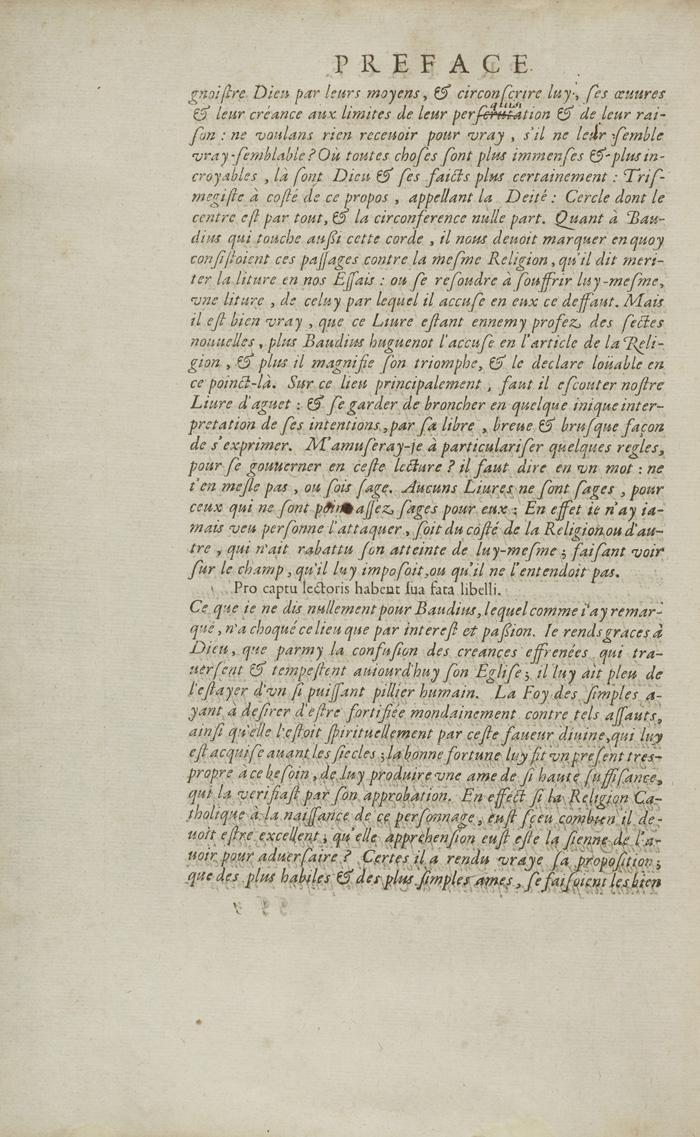 PREFACE
gnoiſtre Dieu par leurs moyens, & circonſcrire luy, ſes œuures
& leur créance aux limites de leur perſcrutation & de leur rai-
ſon : ne voulans rien receuoir pour vray, s'il ne leur ſemble
vray-ſemblable? Où toutes choſes ſont plus immenſes & plus in-
croyables, là ſont Dieu & ſes faicts plus certainement : Triſ-
megiſte à coſté de ce propos, appellant la Deité : Cercle dont le
centre eſt par tout, & la circonference nulle part. Quant à Bau-
dius qui touche auſsi cette corde, il nous deuoit marquer en quoy
conſiſtoient ces paſſages contre la meſme Religion, qu'il dit meri-
ter la liture en nos Eſſais : ou ſe reſoudre à ſouffrir luy-meſme,
vne liture, de celuy par lequel il accuſe en eux ce deffaut. Mais
il eſt bien vray, que ce Liure eſtant ennemy profez des ſectes
nouuelles, plus Baudius huguenot l'accuſe en l'article de la Reli-
gion, & plus il magnifie ſon triomphe, & le declare loüable en
ce poinct-là. Sur ce lieu principalement, faut il eſcouter noſtre
Liure d'aguet : & ſe garder de broncher en quelque inique inter-
pretation de ſes intentions, par ſa libre, breue & bruſque façon
de s'exprimer. M'amuſeray-je à particulariſer quelques regles,
pour ſe gouuerner en ceſte lecture? il faut dire en vn mot : ne
t'en meſle pas, ou ſois ſage. Aucuns Liures ne ſont ſages, pour
ceux qui ne ſont aſſez ſages pour eux : En effet ie n'ay ia-
mais veu perſonne l'attaquer, ſoit du coſté de la Religion ou d'au-
tre, qui n'ait rabattu ſon atteinte de luy-meſme; faiſant voir
ſur le champ, qu'il luy impoſoit, ou qu'il ne l'entendoit pas.
Pro captu lectoris habent ſua fata libelli.
Ce que ie ne dis nullement pour Baudius, lequel comme i'ay remar-
qué, n'a choqué ce lieu que par intereſt et paſsion. Ie rends graces à
Dieu, que parmy la confuſion des creances effrenées qui tra-
uerſent & tempeſtent auiourd'huy ſon Egliſe; il luy ait pleu de
l'eſtayer d'vn ſi puiſſant pillier humain. La Foy des ſimples a-
yant à deſirer d'eſtre fortifiée mondainement contre tels aſſauts,
ainſi qu'elle l'eſtoit ſpirituellement par ceſte faueur diuine, qui luy
eſt acquiſe auant les ſiecles; la bonne fortune luy fit vn preſent tres-
propre à ce beſoin, de luy produire vne ame de ſi haute ſuffiſance,
qui la verifiaſt par ſon approbation. En effect ſi la Religion Ca-
tholique à la naiſſance de ce perſonnage, euſt ſçeu combien il de-
uoit eſtre excellent; qu'elle apprehenſion euſt eſté la ſienne de l'a-
uoir pour aduerſaire? Certes il a rendu vraye ſa propoſition;
que des plus habiles & des plus ſimples ames, ſe faiſoient les bien